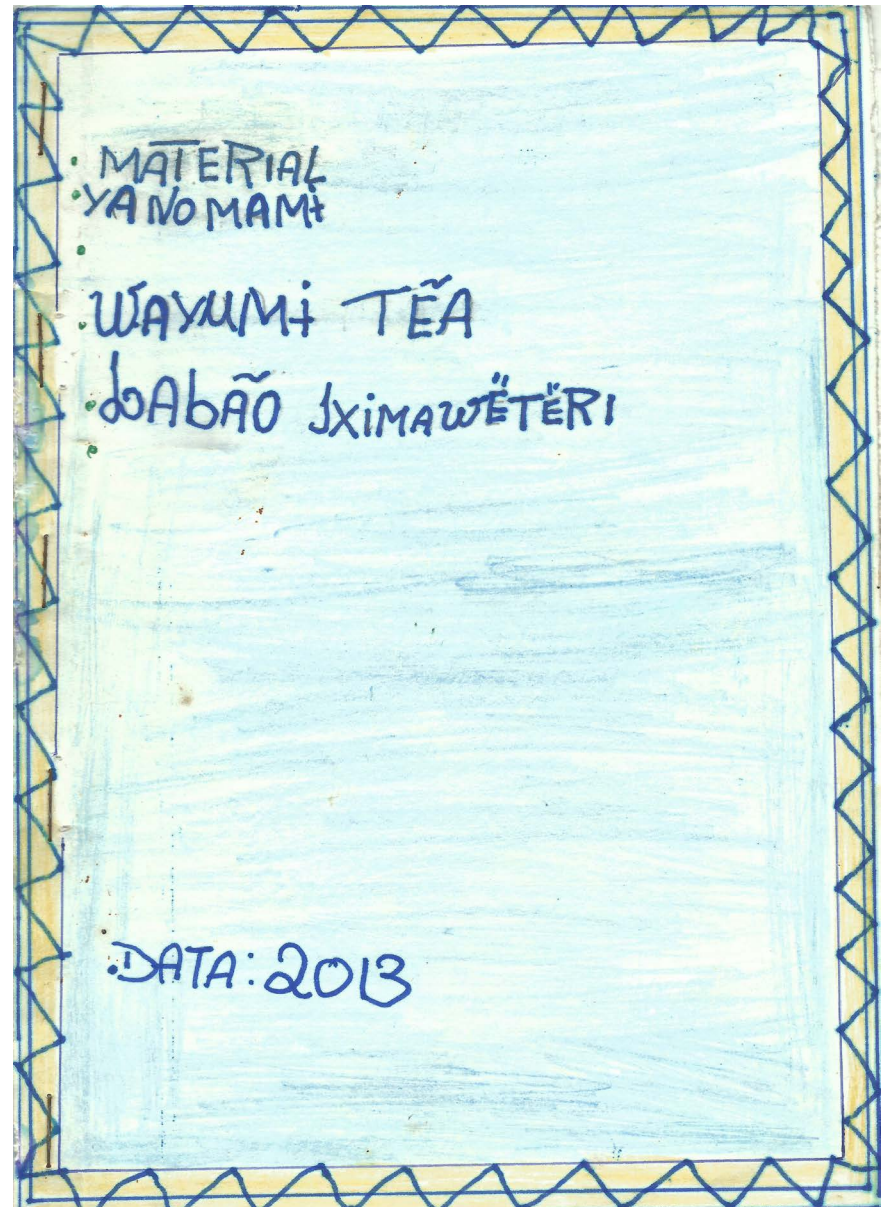 MATERIAL
YANOMAMɨ
WAYUMɨ TẼA
IXIMAWËTËRI
DATA: 2013